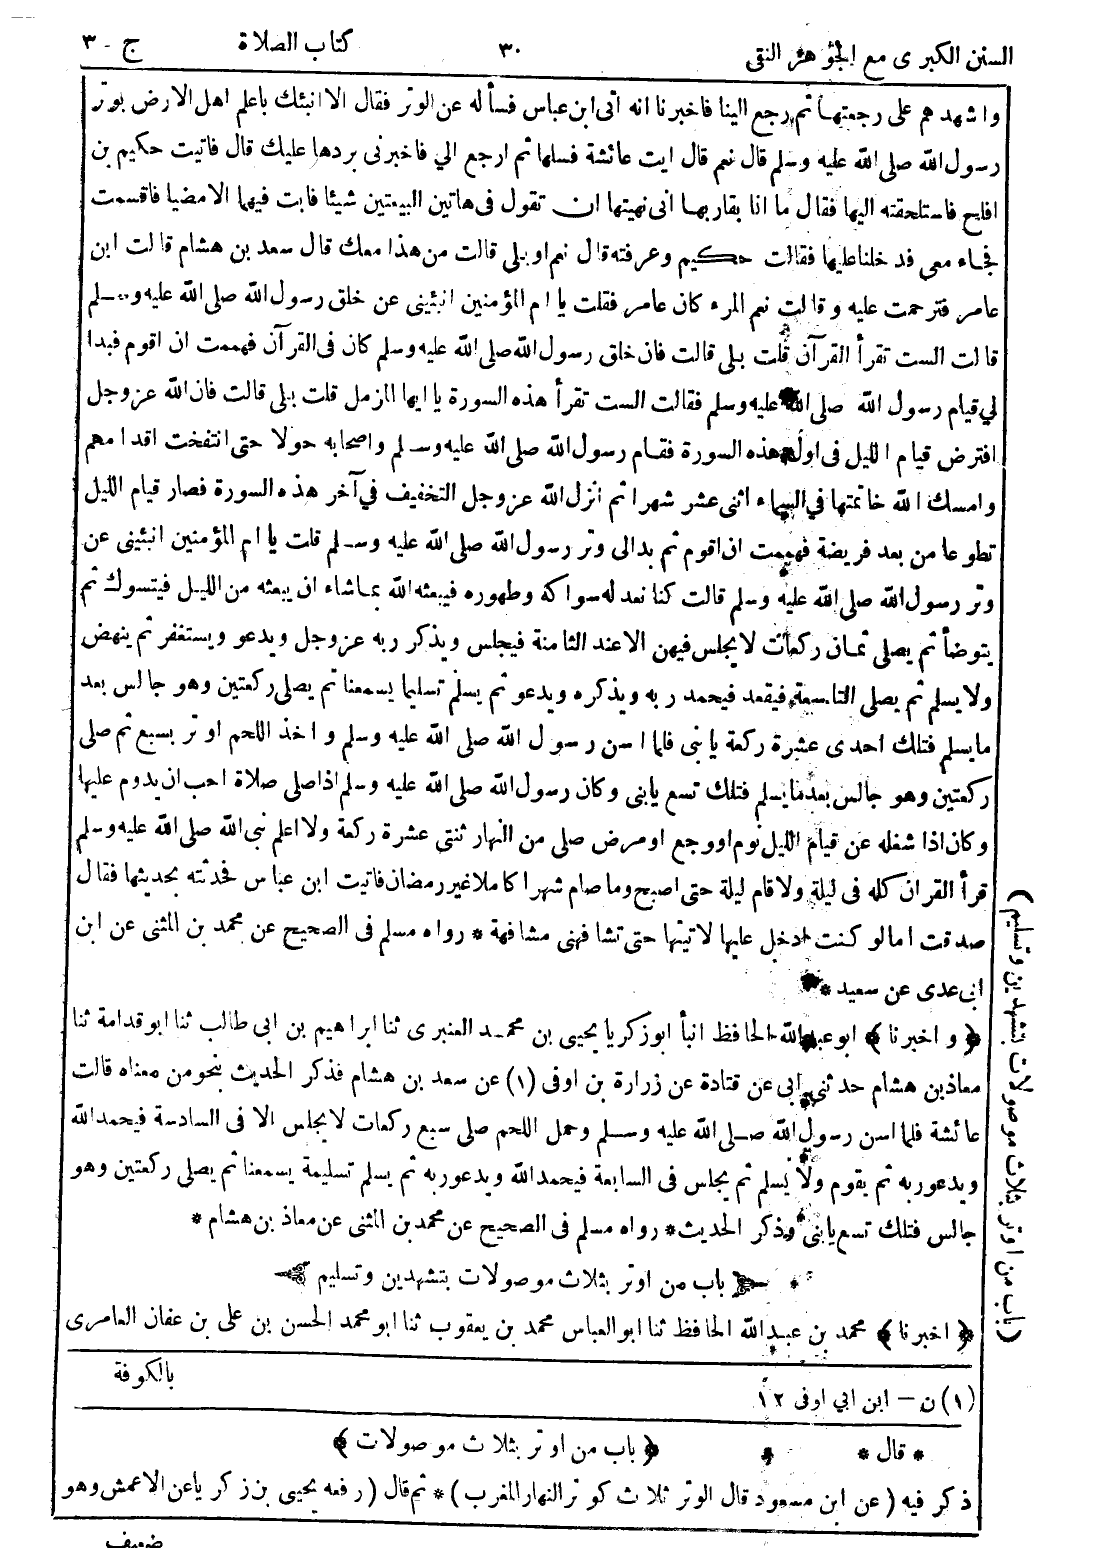 السنن الكبرى مع الجوهر النقى ٣٠ كتاب الصلاة ج - ٣
واشهدهم على رجعتها ثم رجع الينا فاخبرنا انه اتى ابن عباس فسأله عن الوتر فقال الا انبئك باعلم اهل الارض بوتر
رسول الله صلى الله عليه وسلم قال نعم قال ايت عائشة فسلها ثم ارجع الي فاخبرنى بردها عليك قال فاتيت حكيم بن
افلح فاستلحقته اليها فقال ما انا بقاربها انى نهيتها ان تقول فى هاتين البيعتين شيئا فابت فيهما الامضيا فاقسمت
فجاء معى فدخلنا عليها فقالت حكيم وعرفته قال نعم او بلى قالت من هذا معك قال سعد بن هشام قالت ابن
عامر فترحمت عليه وقالت نعم المرء كان عامر فقلت يا ام المؤمنين انبئينى عن خلق رسول الله صلى الله عليه وسلم
قالت الست تقرأ القرآن قلت بلى قالت فان خلق رسول الله صلى الله عليه وسلم كان فى القرآن فهممت ان اقوم فبدا
لي قيام رسول الله صلى الله عليه وسلم فقالت الست تقرأ هذه السورة يا ايها المزمل قلت بلى قالت فان الله عز وجل
افترض قيام الليل فى اول هذه السورة فقام رسول الله صلى الله عليه وسلم واصحابه حولا حتى انتفخت اقدامهم
وامسك الله خاتمتها في السماء اثنى عشر شهرا ثم انزل الله عز وجل التخفيف في آخر هذه السورة فصار قيام الليل
تطوعا من بعد فريضة فهممت ان اقوم ثم بدالى وتر رسول الله صلى الله عليه وسلم قلت يا ام المؤمنين انبئينى عن
وتر رسول الله صلى الله عليه وسلم قالت كنا نعد له سواكه وطهوره فيبعثه الله بماشاء ان يبعثه من الليل فيتسوك ثم
يتوضأ ثم يصلى ثمان ركعات لا يجلس فيهن الا عند الثامنة فيجلس ويذكر ربه عز وجل ويدعو ويستغفر ثم ينهض
ولا يسلم ثم يصلى التاسعة فيقعد فيحمد ربه ويذكره ويدعو ثم يسلم تسليما يسمعنا ثم يصلى ركعتين وهو جالس بعد
ما يسلم فتلك احدى عشرة ركعة يا بنى فلما اسن رسول الله صلى الله عليه وسلم واخذ اللحم اوتر بسبع ثم صلى
ركعتين وهو جالس بعدما يسلم فتلك تسع يا بنى وكان رسول الله صلى الله عليه وسلم اذا صلى صلاة احب ان يدوم عليها
وكان اذا شغله عن قيام الليل نوم او وجع او مرض صلى من النهار ثنتى عشرة ركعة ولا اعلم نبى الله صلى الله عليه وسلم
قرأ القران كله فى ليلة ولا قام ليلة حتى اصبح وما صام شهرا كاملا غير رمضان فاتيت ابن عباس فحدثته بحديثها فقال
صدقت اما لو كنت ادخل عليها لا تيتها حتى تشافهنى مشافهة * رواه مسلم فى الصحيح عن محمد بن المثنى عن ابن
ابى عدى عن سعيد *
﴿ و اخبرنا ﴾ ابو عبد الله الحافظ انبأ ابو زكريا يحيى بن محمد العنبرى ثنا ابراهيم بن ابى طالب ثنا ابو قدامة ثنا
معاذ بن هشام حدثنى ابى عن قتادة عن زرارة بن اوفى (١) عن سعد بن هشام فذكر الحديث بنحو من معناه قالت
عائشة فلما اسن رسول الله صلى الله عليه وسلم وحمل اللحم صلى سبع ركعات لا يجلس الا فى السادسة فيحمد الله
ويدعو ربه ثم يقوم ولا يسلم ثم يجلس فى السابعة فيحمد الله ويدعو ربه ثم يسلم تسليمة يسمعنا ثم يصلى ركعتين وهو
جالس فتلك تسع يا بنى وذكر الحديث * رواه مسلم فى الصحيح عن محمد بن المثنى عن معاذ بن هشام *
* باب من اوتر بثلاث موصولات بتشهدين وتسليم
﴿ اخبرنا ﴾ محمد بن عبد الله الحافظ ثنا ابو العباس محمد بن يعقوب ثنا ابو محمد الحسن بن على بن عفان العامرى
بالكوفة
(١) ن – ابن ابي اوفى ١٢
* قال * ﴿ باب من اوتر بثلاث موصولات ﴾
ذكر فيه (عن ابن مسعود قال الوتر ثلاث كوتر النهار المغرب) * ثم قال (رفعه يحيى بن زكريا عن الاعمش وهو
ضعيف
(باب من اوتر بثلاث موصولات بتشهدين وتسليم)